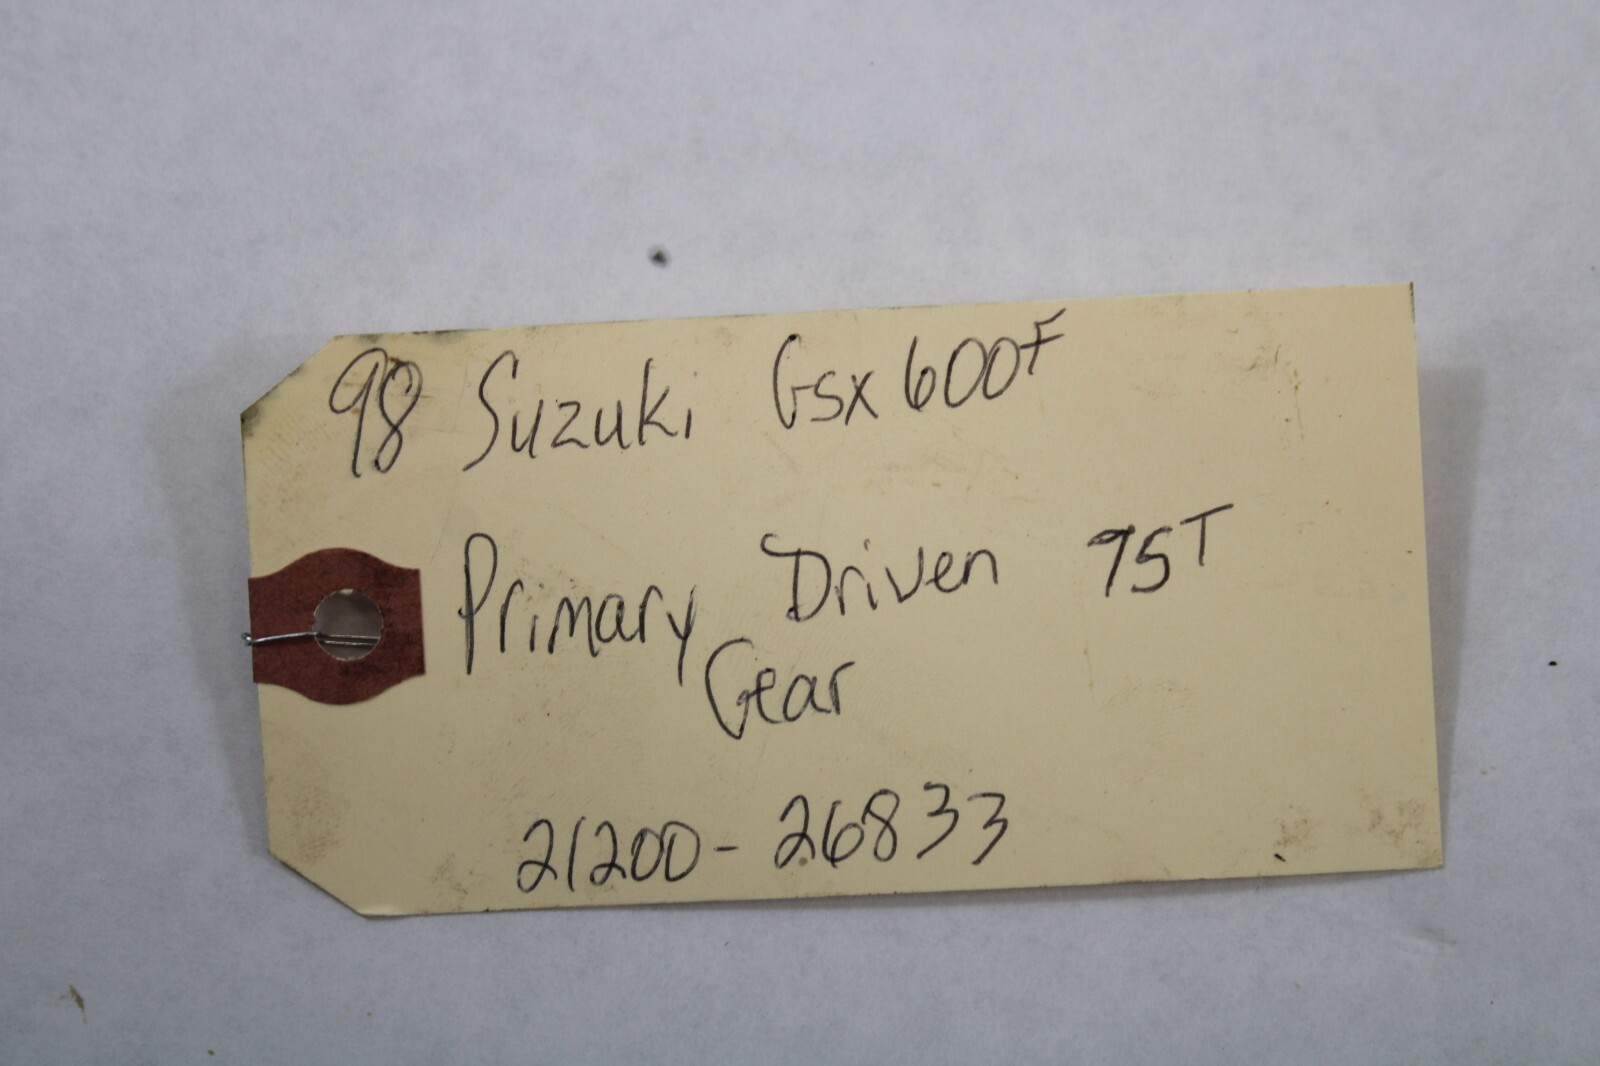 98 Suzuki Gsx600F
Primary Driven 75T
Gear
21200-26833